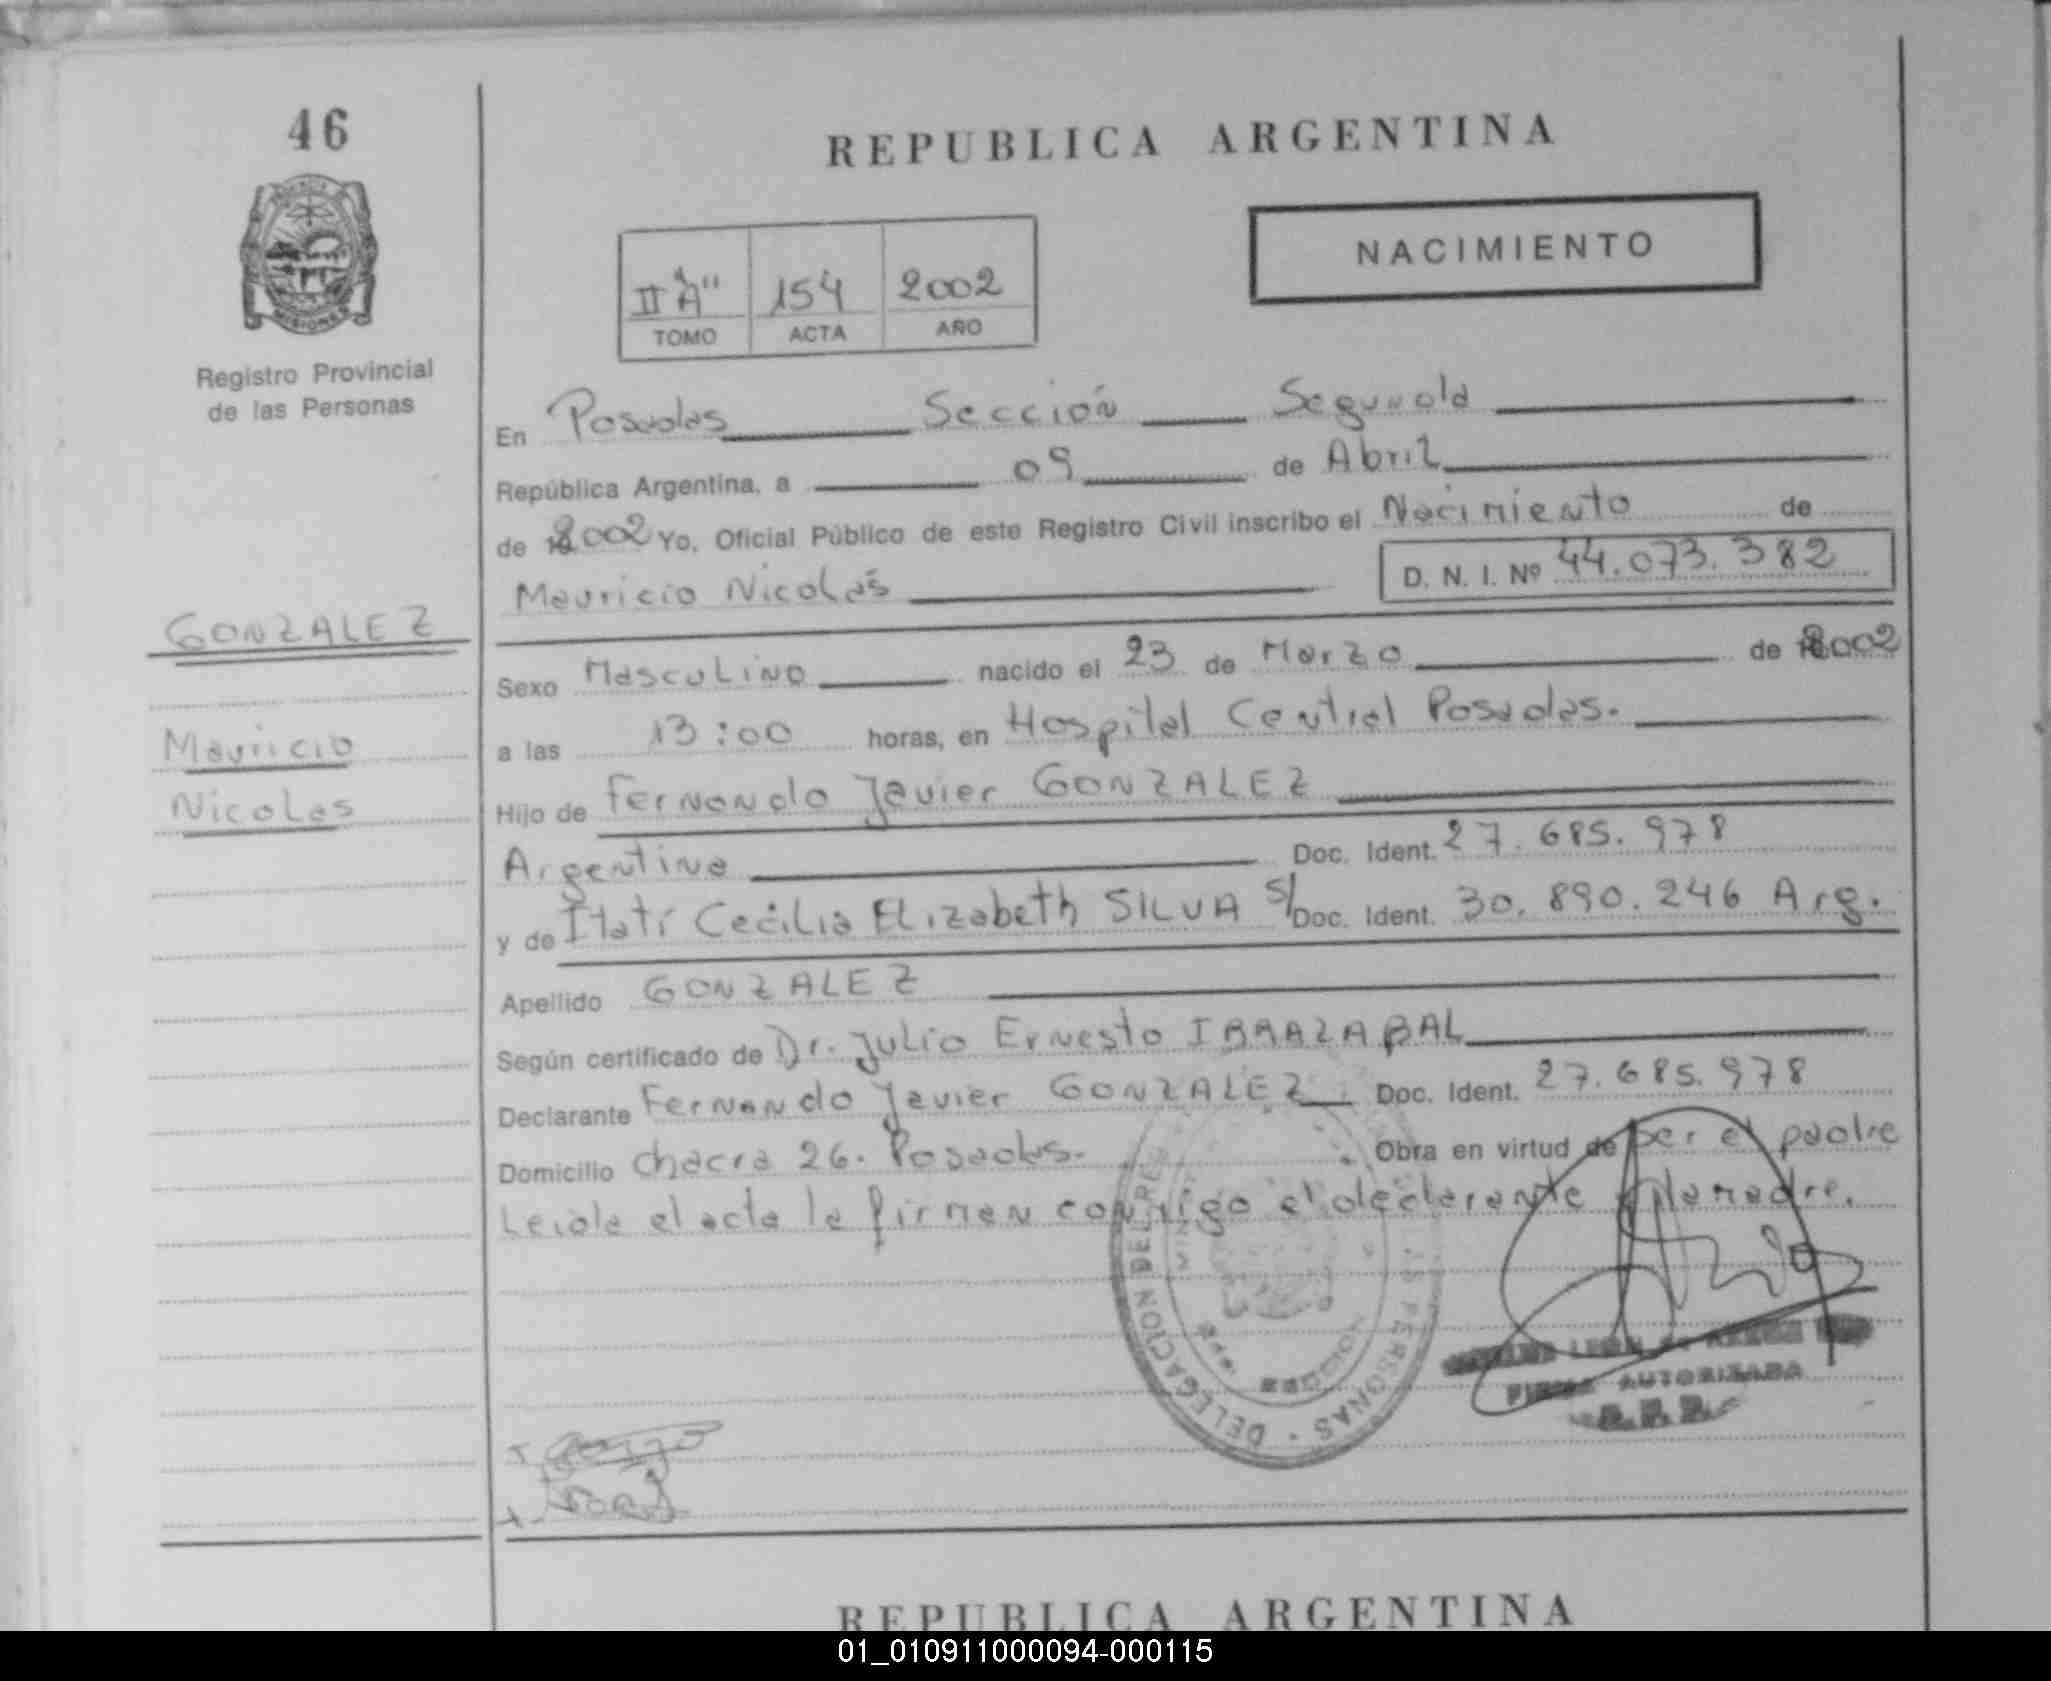 46
REPUBLICA ARGENTINA
NACIMIENTO
MISIONES
II "A" 154 2002
TOMO ACTA AÑO
Registro Provincial
de las Personas
En Posadas Sección Segunda
República Argentina, a 09 de Abril
de 2002 Yo, Oficial Público de este Registro Civil inscribo el Nacimiento de
Mauricio Nicolás D. N. I. Nº 44.073.382
GONZALEZ
Mauricio
Nicolas
Sexo Masculino nacido el 23 de Marzo de 2002
a las 13:00 horas, en Hospital Central Posadas.
Hijo de Fernando Javier GONZALEZ
Argentina Doc. Ident. 27.685.978
y de Itatí Cecilia Elizabeth SILVA S/ Doc. Ident. 30.890.246 Arg.
Apellido GONZALEZ
Según certificado de Dr. Julio Ernesto IRRAZABAL
Declarante Fernando Javier GONZALEZ Doc. Ident. 27.685.978
Domicilio Chacra 26. Posadas. Obra en virtud de ser el padre
Leida el acta la firman conmigo el declarante y la madre.
DELEGACION DEL PERSONAS
FIRMA AUTORIZADA
REPUBLICA ARGENTINA
01_010911000094-000115